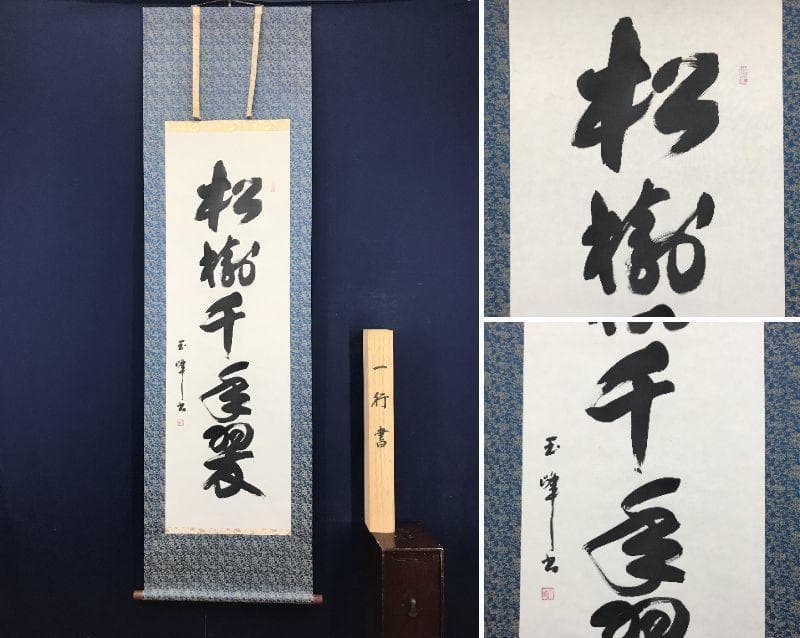 松樹千年翠
玉峰書
一行書
松樹
千年翠
玉峰書